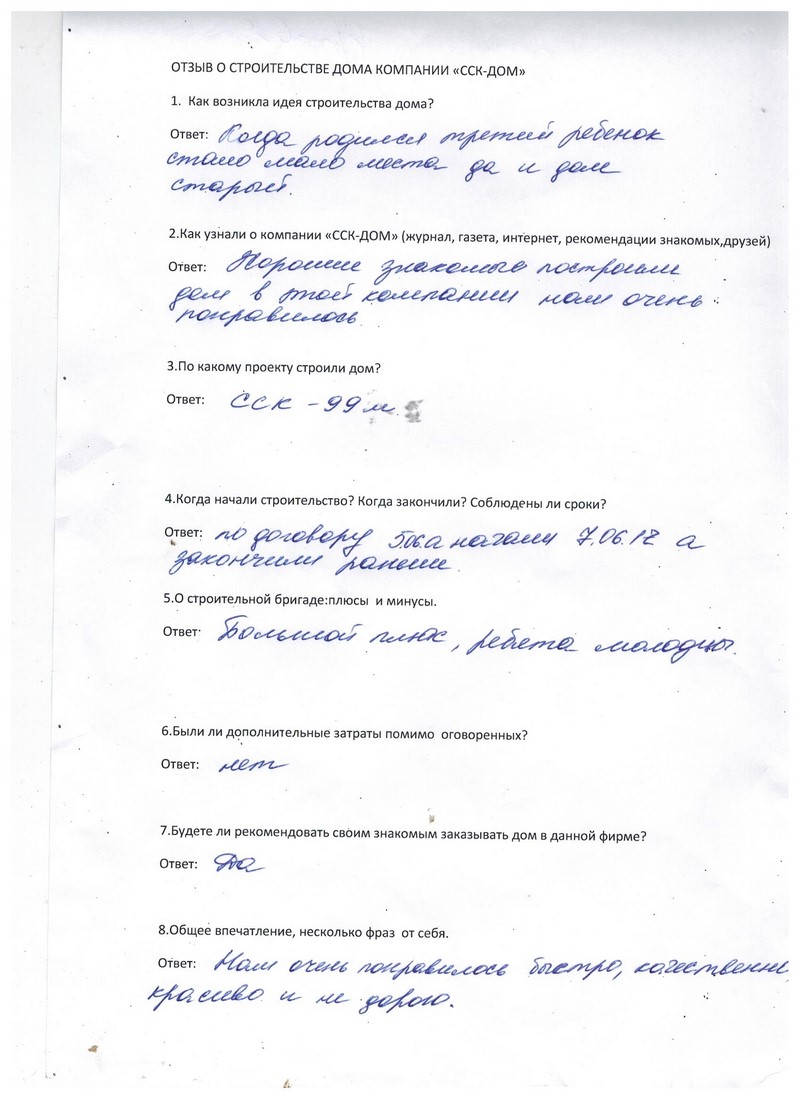 ОТЗЫВ О СТРОИТЕЛЬСТВЕ ДОМА КОМПАНИИ «ССК-ДОМ»
1. Как возникла идея строительства дома?
Ответ: Когда родился третий ребенок
стало мало места да и дом
старый.
2.Как узнали о компании «ССК-ДОМ» (журнал, газета, интернет, рекомендации знакомых,друзей)
Ответ: Хорошие знакомые построили
дом в этой компании нам очень
понравилось.
3.По какому проекту строили дом?
Ответ: ССК - 99 м.
4.Когда начали строительство? Когда закончили? Соблюдены ли сроки?
Ответ: по договору начали 7.06.17 а
закончили раньше.
5.О строительной бригаде:плюсы и минусы.
Ответ: Большой плюс, ребята молодцы.
6.Были ли дополнительные затраты помимо оговоренных?
Ответ: нет
7.Будете ли рекомендовать своим знакомым заказывать дом в данной фирме?
Ответ: Да
8.Общее впечатление, несколько фраз от себя.
Ответ: Нам очень понравилось быстро, качественно
красиво и не дорого.